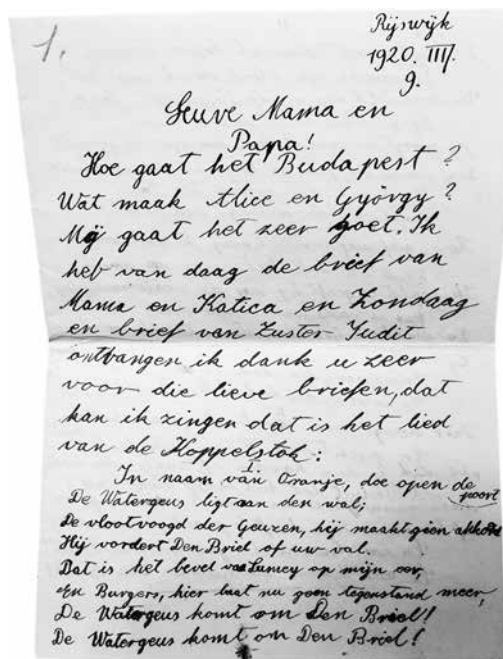 1.
Rijswijk
1920. III.
9.
Leuve Mama en
Papa!
Hoe gaat het Budapest?
Wat maak Alice en György?
Mij gaat het zeer goet. Ik
heb van daag de brief van
Mama en Katica en Zondaag
en brief van Zuster Judit
ontvangen ik dank u zeer
voor die lieve briefen, dat
kan ik zingen dat is het lied
van de Koppelstok:
In naam van Oranje, doe open de poort
De Watergeus ligt aan den wal;
De vlootvoogd der Geuzen, hij maakt geen akkord
Hij vordert Den Briel of uw val.
Dat is het bevel van Lumey op mijn eer,
En Burgers, hier baat nu geen tegenstand meer,
De Watergeus komt om Den Briel!
De Watergeus komt om Den Briel!